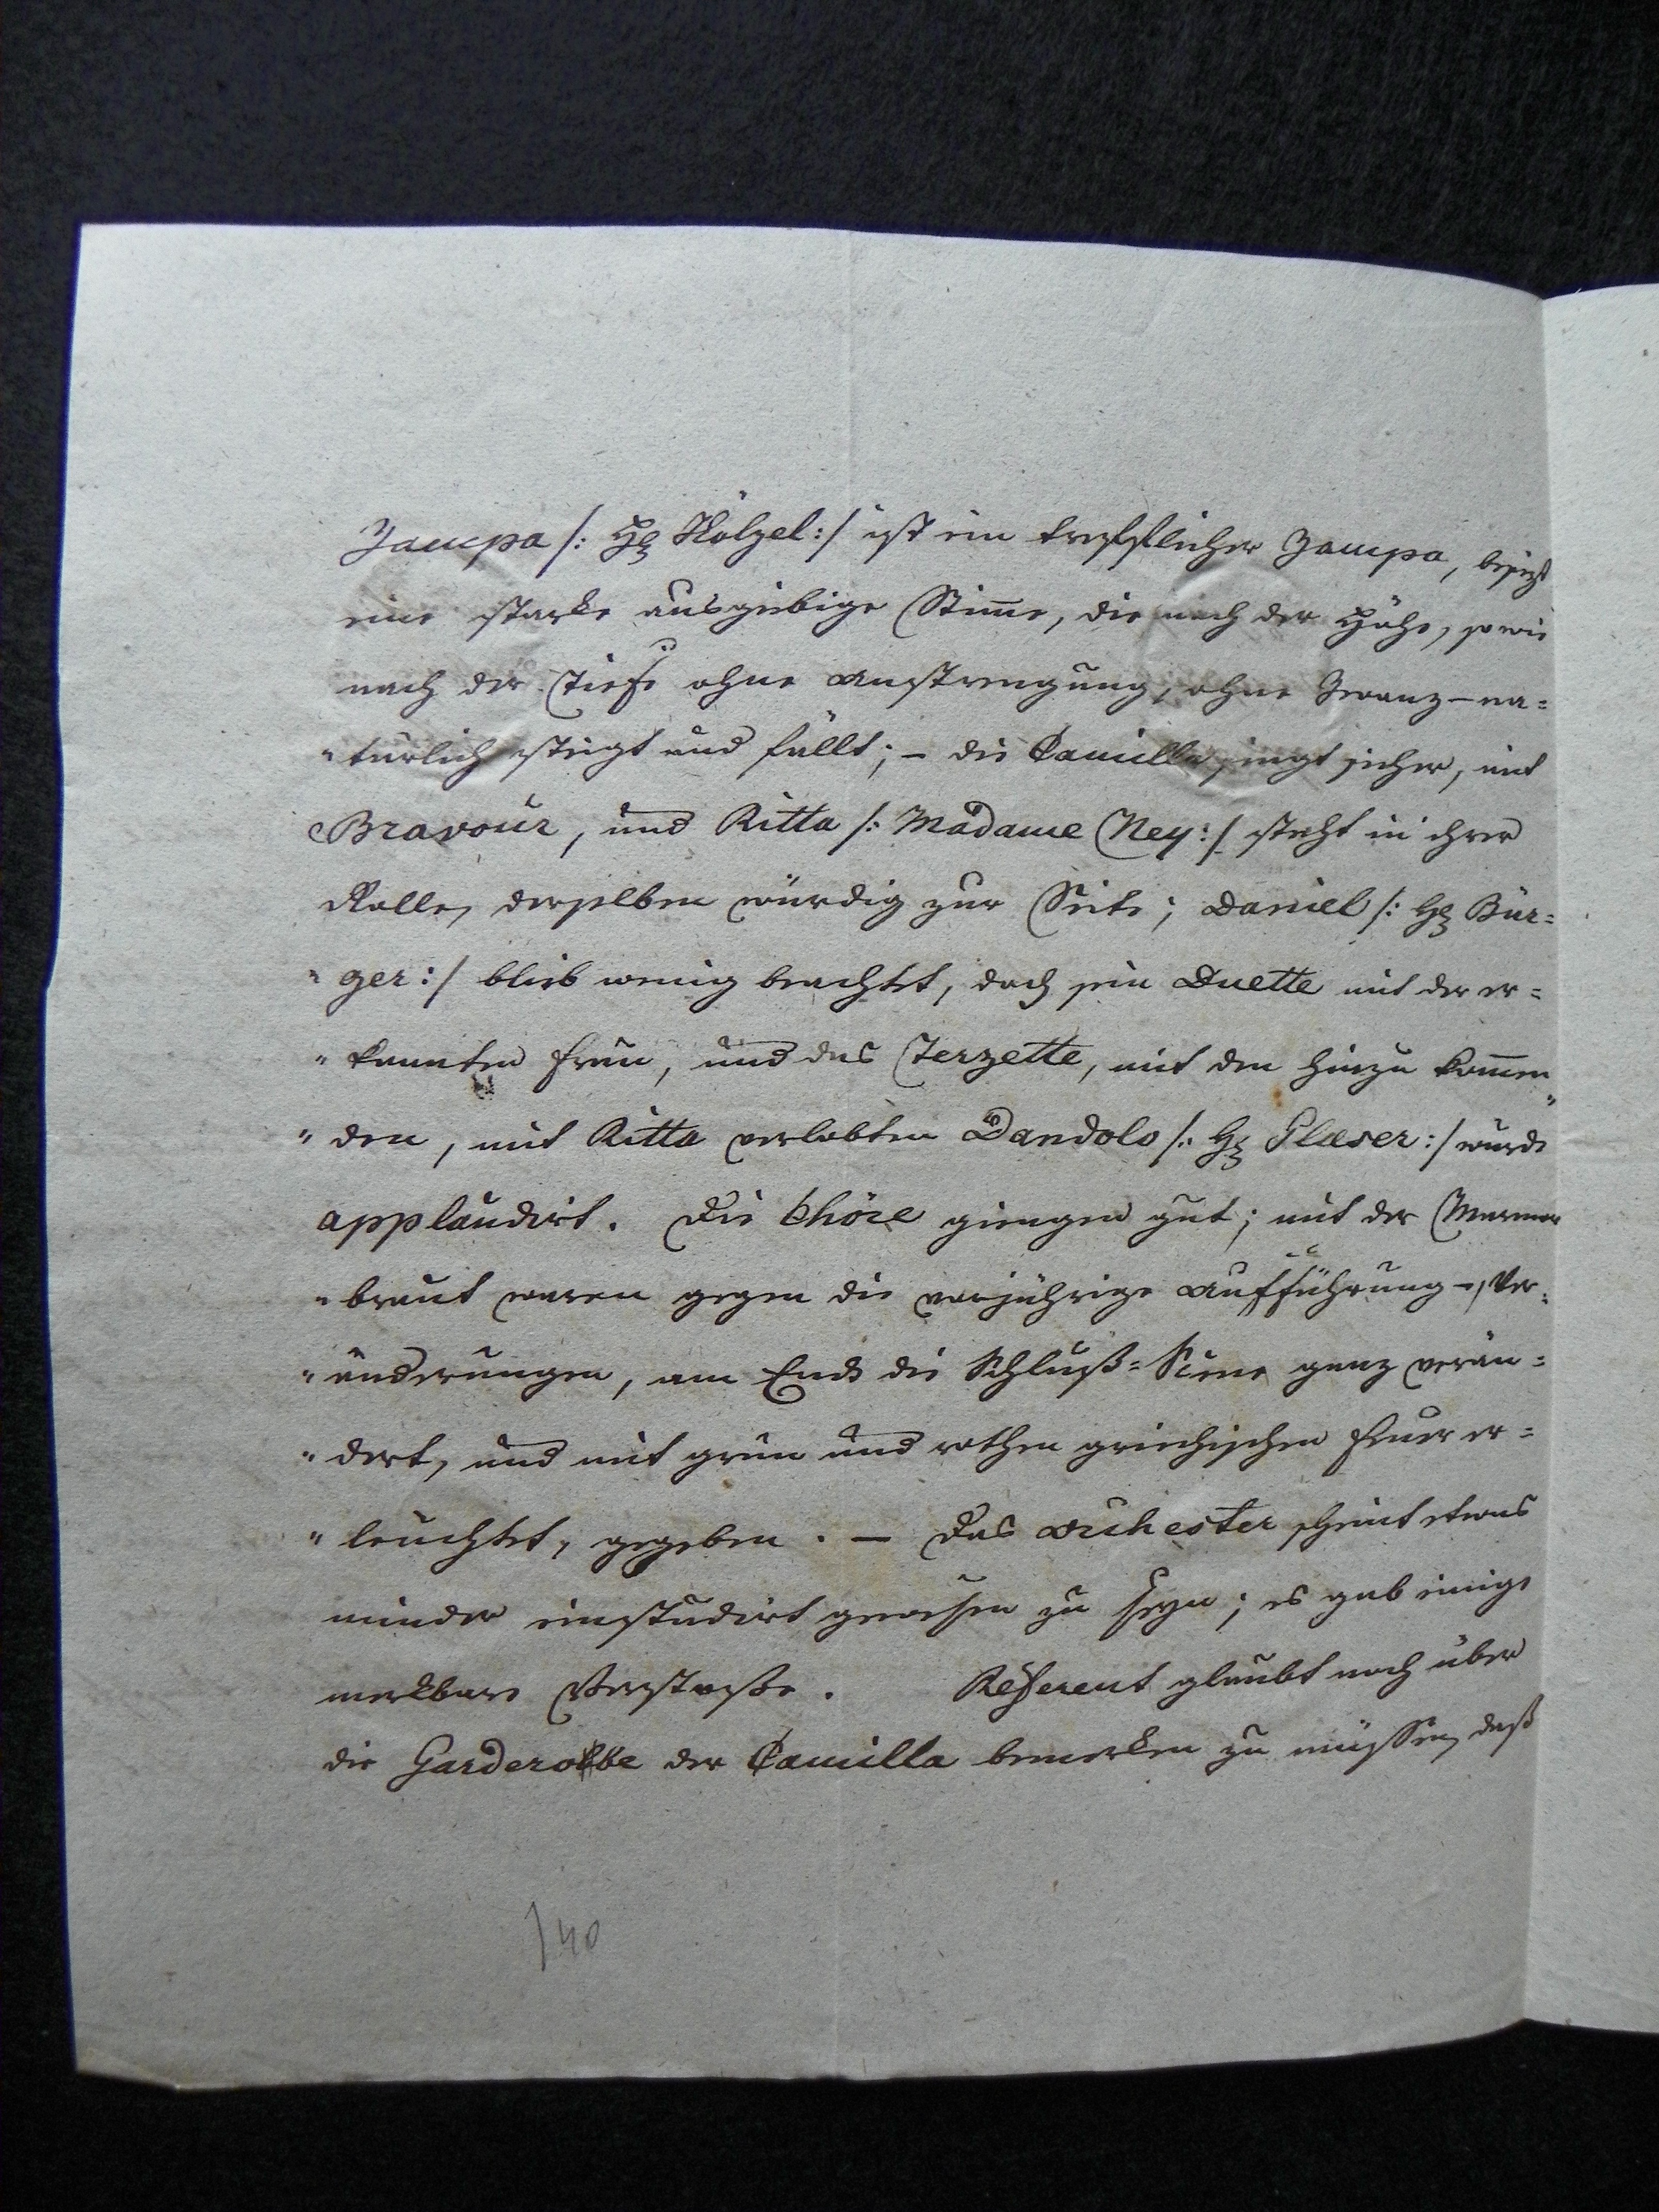 Zampa /: H̱ Hölzel :/ ist ein trefflicher Zampa, besizt
eine starke ausgiebige Stim̄e, die nach der Höhe, sowie
nach der Tiefe ohne Anstrengung, ohne Zwang – na=
"türlich steigt und fällt; – die Camilla singt sicher, mit
Bravour, und Ritta /: Madame Ney :/ steht in ihrer
Rolle, derselben würdig zur Seite; Daniel /: H Bur=
"ger :/ blieb wenig beachtet, doch sein Duette mit der er=
"kannten Frau, und das Terzette, mit den hinzu kom̄en"
"den, mit Ritta verlobten Dandolo /: H Glæser :/ wurde
applaudirt. Die Chöre giengen gut; mit der Marmor
"braut waren gegen die vorjährige Aufführung –, Ver=
"änderungen, am Ende die Schluß=Scene ganz verän=
"dert, und mit grün und rothen griechischen Feuer er=
"leuchtet, gegeben. – Das Orchester scheint etwas
minder einstudirt gewesen zu seyn; es gab einige
merkbare Verstoße. Referent glaubt noch über
die Garderobbe der Camilla bemerken zu müssen, daß
140